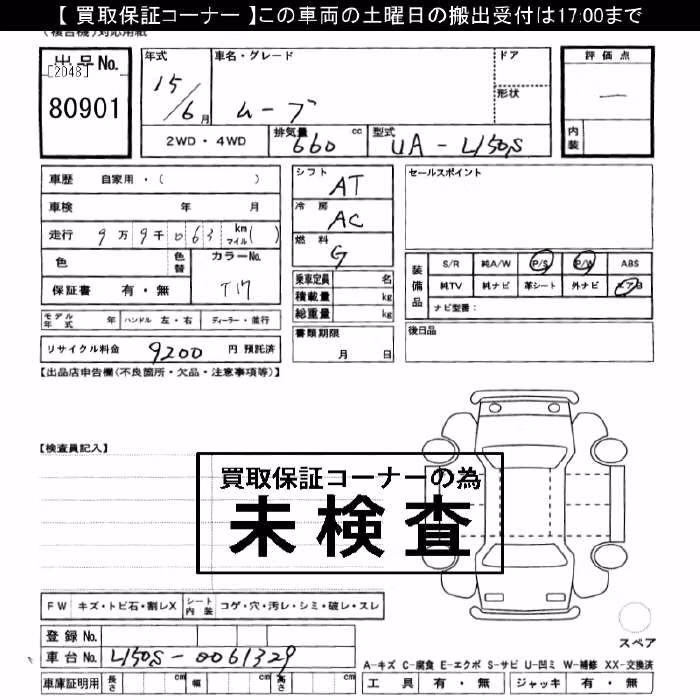 【 買取保証コーナー 】この車両の土曜日の搬出受付は17:00まで
出品No.
[2048]
80901
年式
15/6月
車名・グレード
ムーブ
ドア
形状
評価点
―
内装
2WD・4WD
排気量 660 cc
型式 UA-L150S
車歴 自家用・( )
車検 年 月
走行 9万9千063 km マイル( )
色 色替
カラーNo. T17
保証書 有・無
モデル年式 年 ハンドル 左・右 ディーラー・並行
リサイクル料金 9200 円 預託済
シフト AT
冷房 AC
燃料 G
乗車定員 名
積載量 kg
総重量 kg
書類期限
月 日
セールスポイント
装備品
S/R 純A/W P/S P/W ABS
純TV 純ナビ 革シート 外ナビ エアB
ナビ型番：
後日品
【出品店申告欄(不良箇所・欠品・注意事項等)】
【検査員記入】
買取保証コーナーの為
未検査
FW キズ・トビ石・割レX シート内装 コゲ・穴・汚レ・シミ・破レ・スレ
登録 No.
車台 No. L150S-0061329
車庫証明用 長さ cm 幅 cm 高さ cm
スペア
A-キズ C-腐食 E-エクボ S-サビ U-凹ミ W-補修 XX-交換済
工具 有・無 ジャッキ 有・無